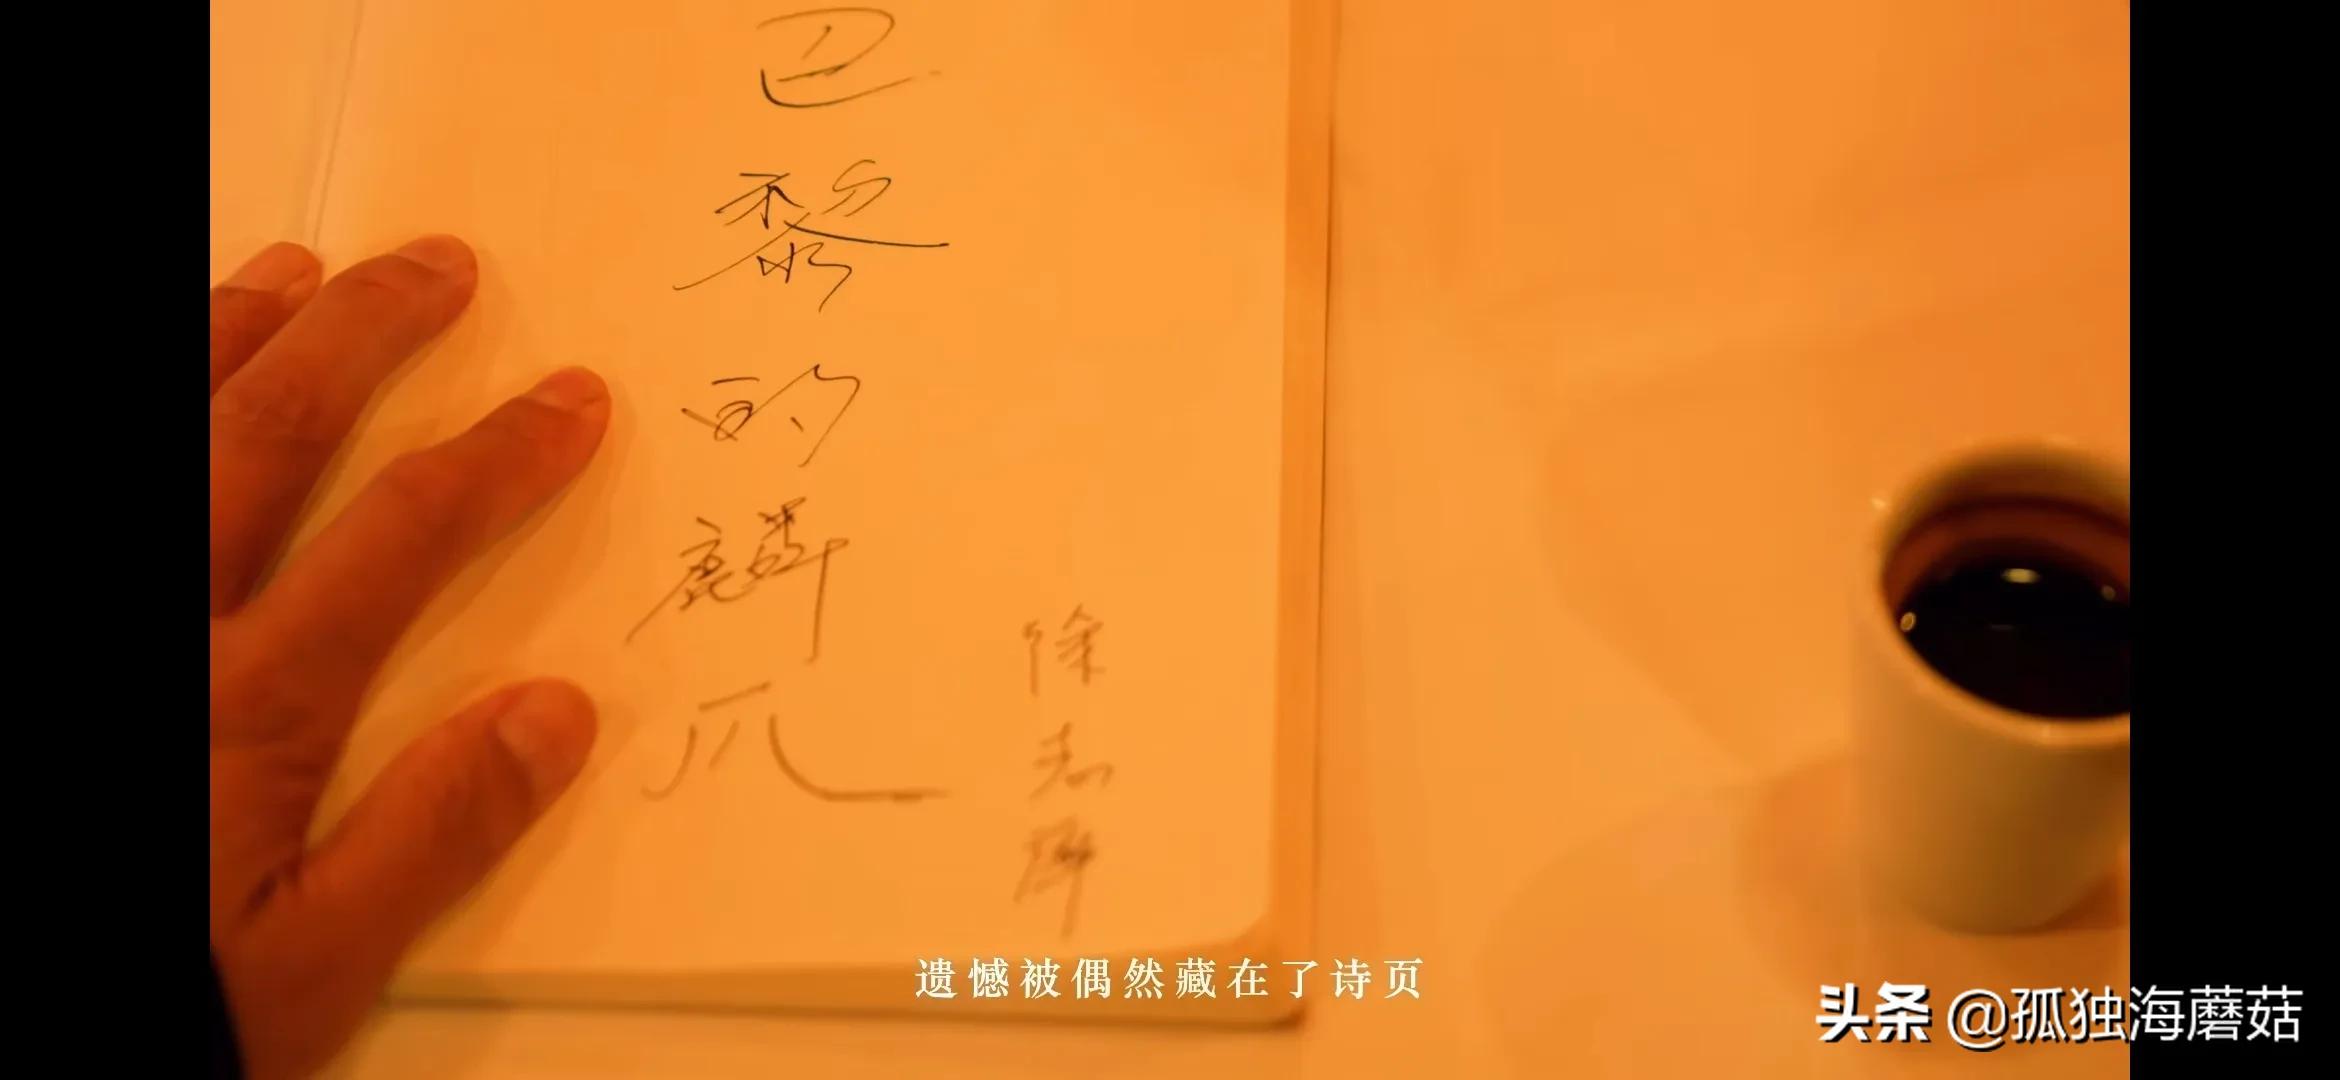 巴黎的麟爪
徐志摩
遗憾被偶然藏在了诗页
头条 @孤独海蘑菇